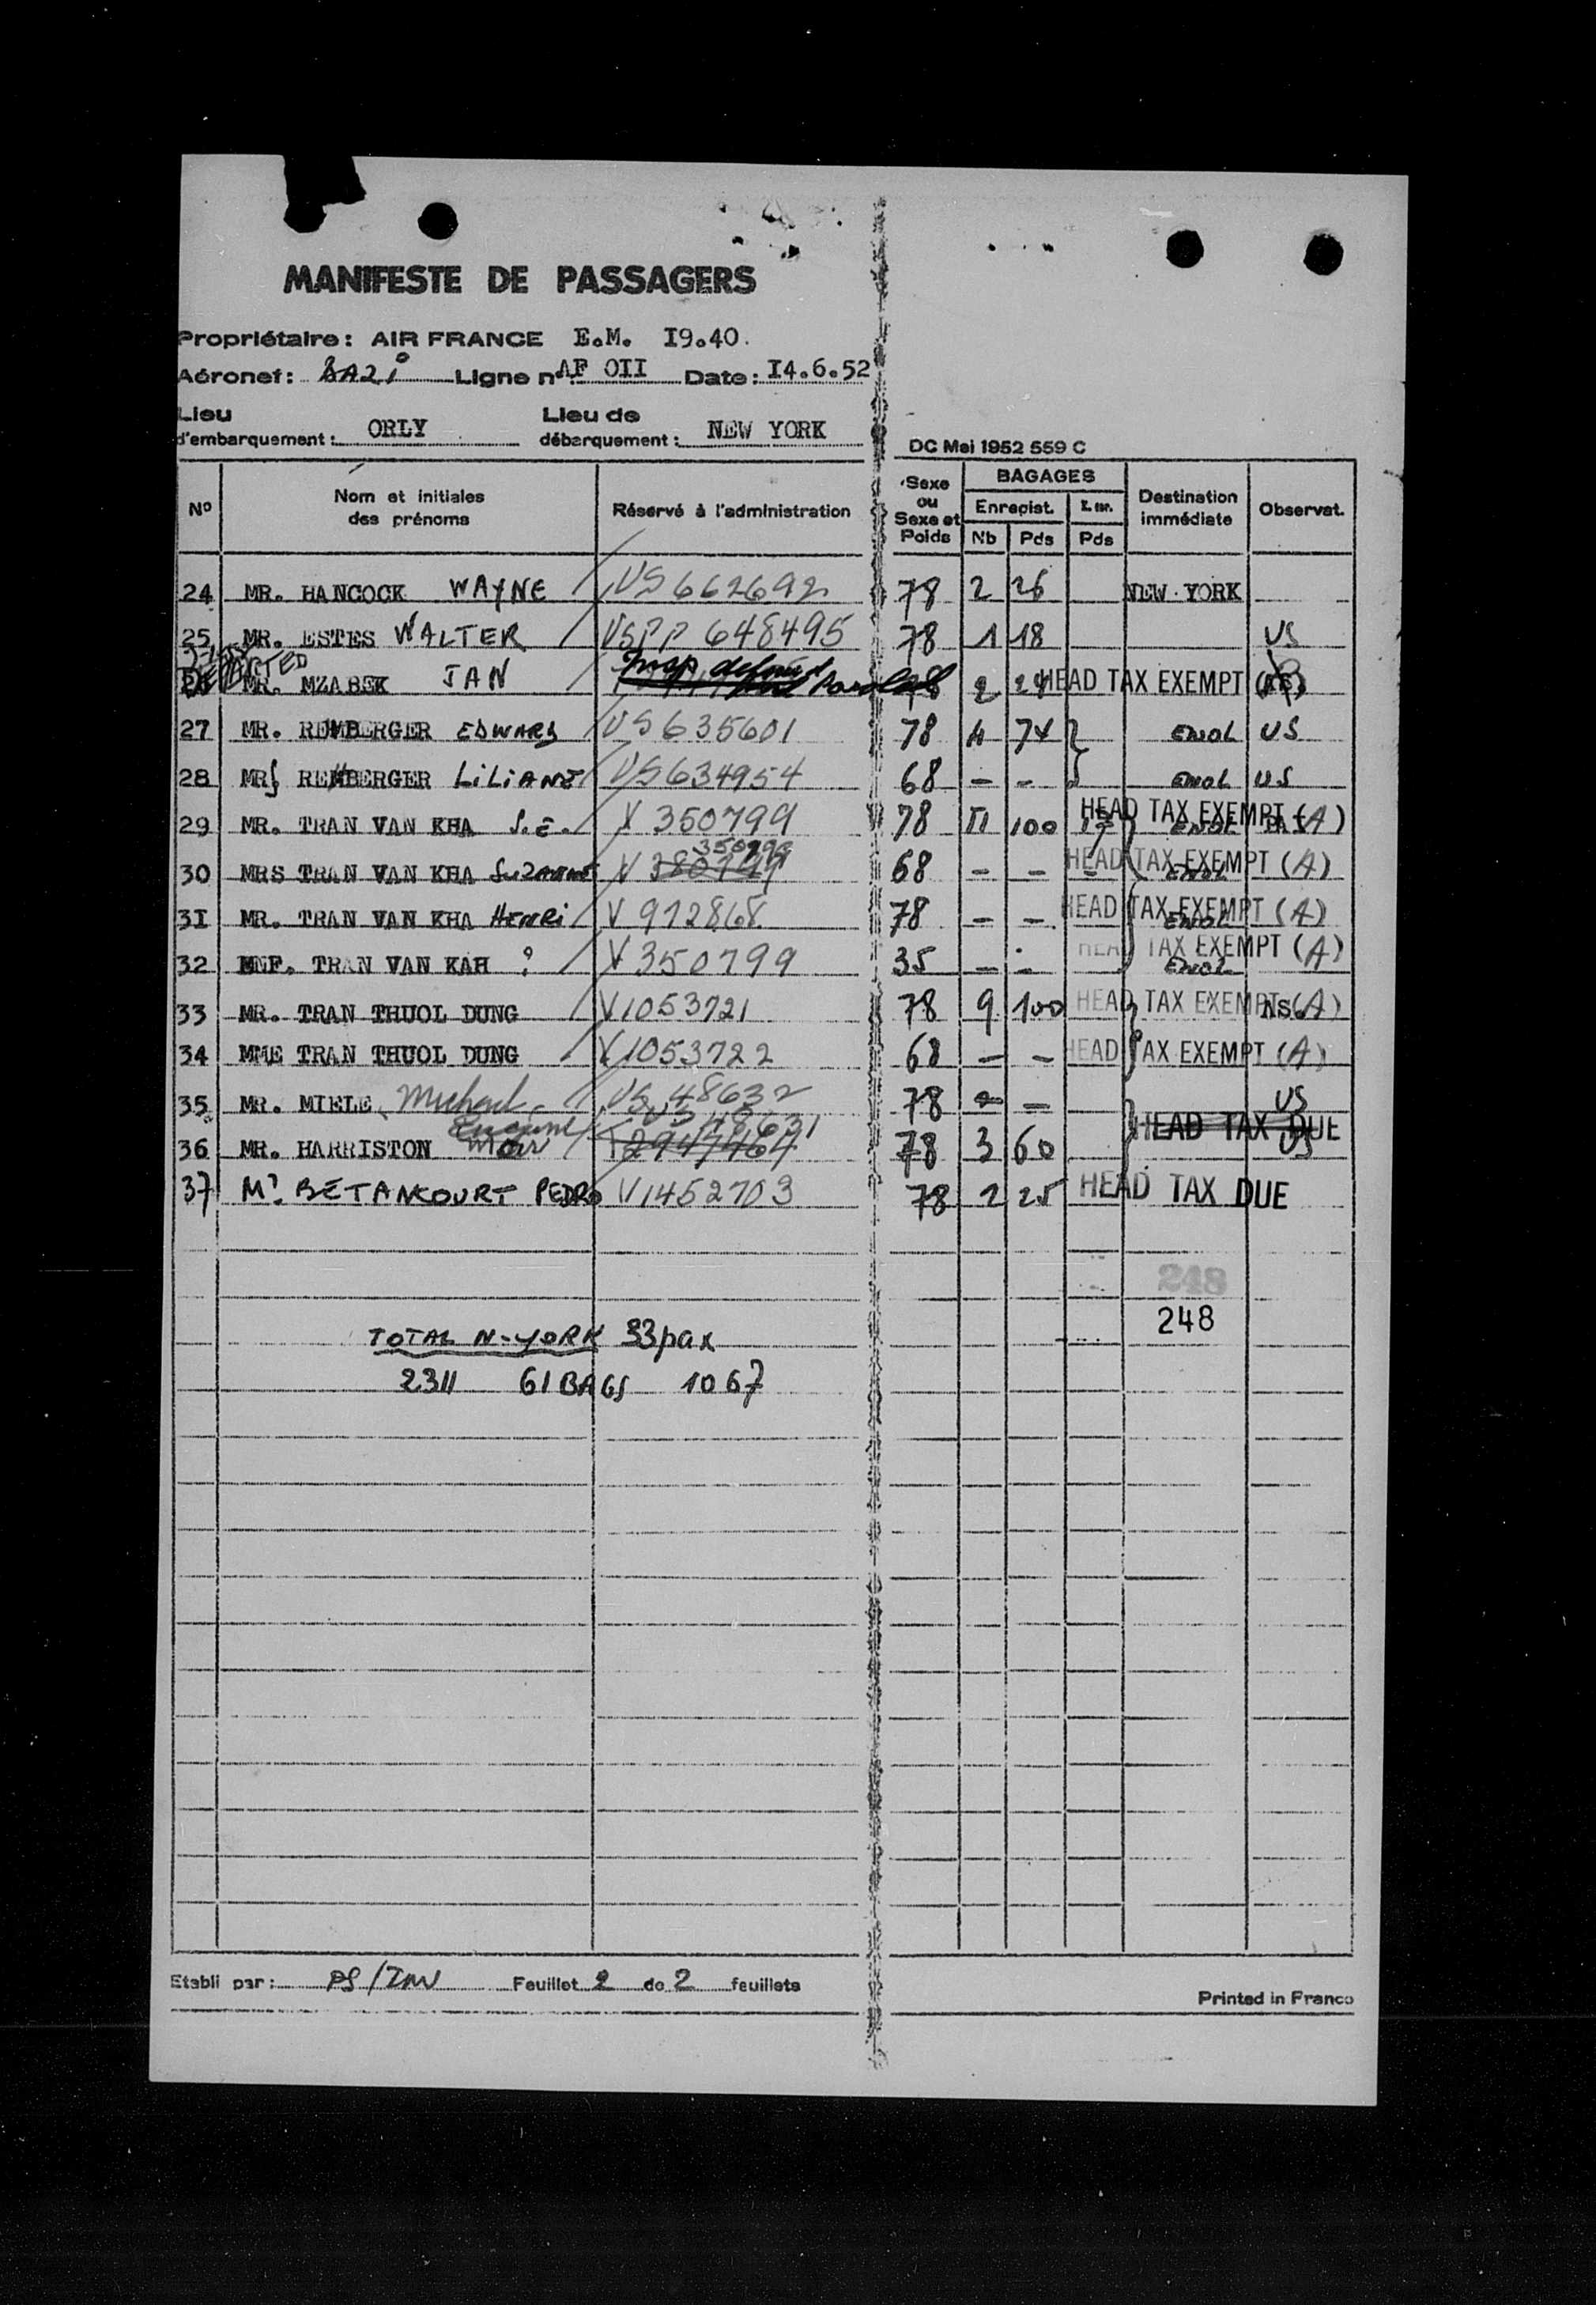 MANIFESTE DE PASSAGERS
Propriétaire: AIR FRANCE E.M. I9.40.
Aéronef: Ligne n° AF OII Date: I4.6.52
Lieu d'embarquement: ORLY Lieu de débarquement: NEW YORK
DC Mai 1952 559 C
Nº Nom et initiales des prénoms Réservé à l'administration Sexe ou Sexe et Poids BAGAGES Enregist. Nb Pds Pds Destination immédiate Observat.
24 MR. HANCOCK WAYNE US 662692 78 2 26 NEW YORK
25 MR. ESTES WALTER USPP 648495 78 1 18 US
MR. MZABEK JAN 78 2 24 HEAD TAX EXEMPT
27 MR. REMBERGER EDWARD US 635601 78 4 74 US
28 MRS REMBERGER LILIANE US 634954 68 - - US
29 MR. TRAN VAN KHA S.E. V 350799 78 11 100 HEAD TAX EXEMPT (A)
30 MRS TRAN VAN KHA SUZANNE V 350799 68 - - HEAD TAX EXEMPT (A)
3I MR. TRAN VAN KHA HENRI V 912868 78 - - HEAD TAX EXEMPT (A)
32 TRAN VAN KAH ? V 350799 35 - - HEAD TAX EXEMPT (A)
33 MR. TRAN THUOL DUNG V 1053721 78 9 100 HEAD TAX EXEMPT (A)
34 MME TRAN THUOL DUNG V 1053722 68 - - HEAD TAX EXEMPT (A)
35 MR. MIELE Michael US 48632 78 - US
36 MR. HARRISTON US 48631 T2947464 78 3 60 HEAD TAX DUE US
37 Mr. BETANCOURT PEDRO V 1452703 78 2 25 HEAD TAX DUE
248
248
TOTAL N-YORK 33 pax
2311 61 BAGS 1067
Etabli par: Feuillet 2 de 2 feuillets
Printed in France